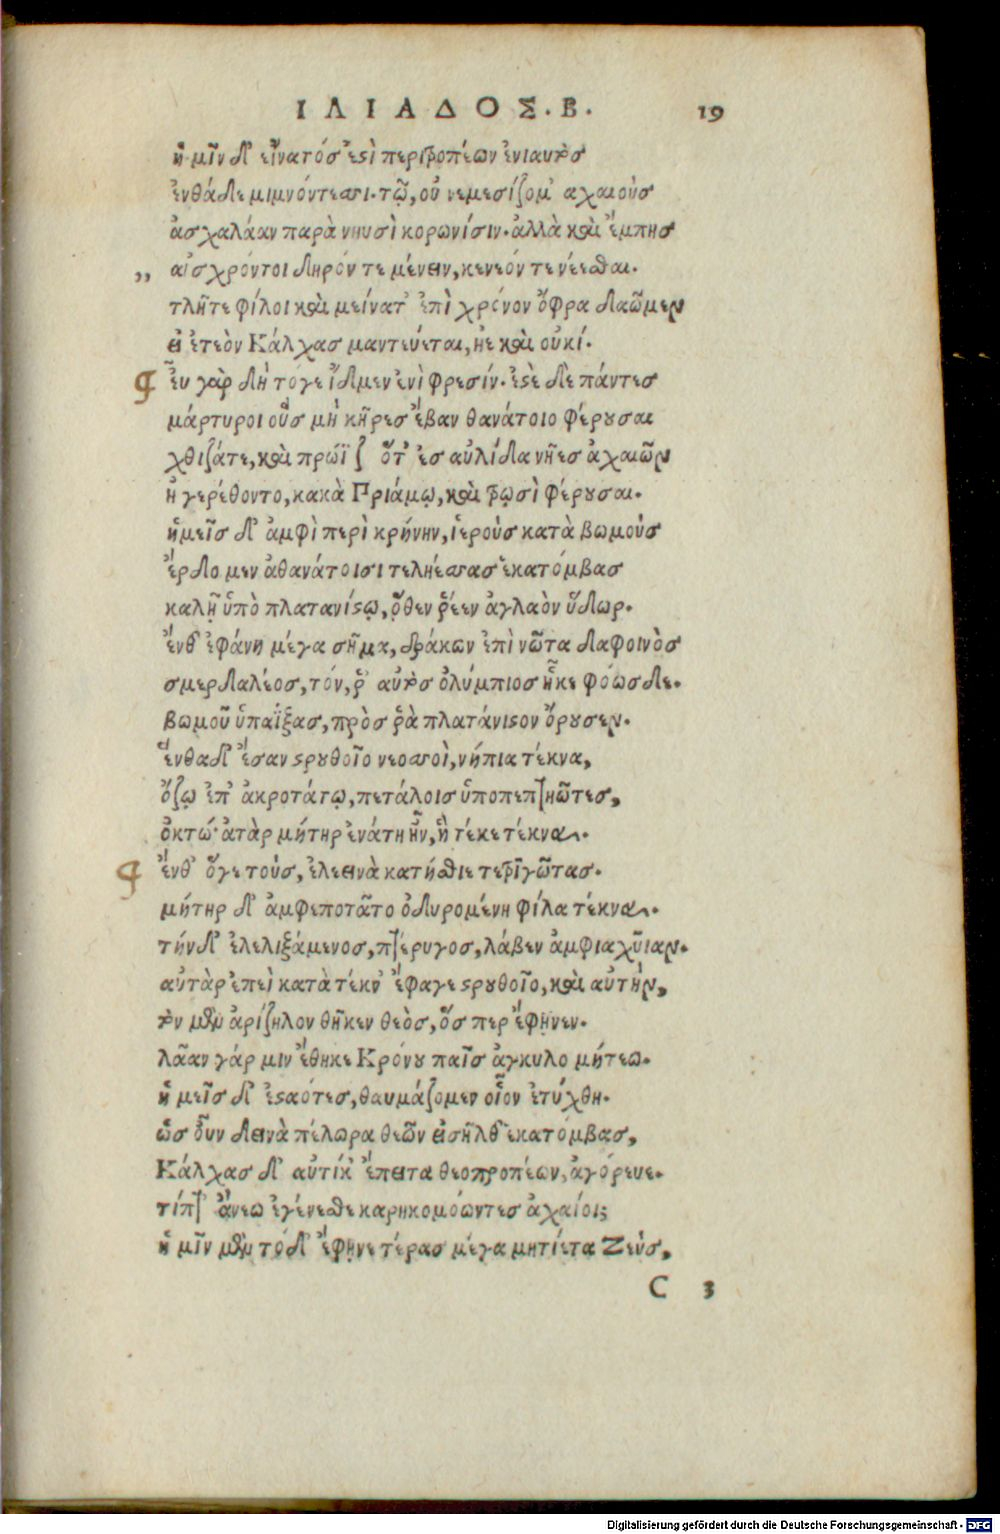 ΙΛΙΑΔΟΣ. Β. 19
ἡμῖν δ' εἴνατός ἐστὶ περιτροπέων ἐνιαυτὸς
ἐνθάδε μιμνόντεσσι. τῷ, οὐ νεμεσίζομ' ἀχαιοὺς
ἀσχαλάαν παρὰ νηυσὶ κορωνίσιν. ἀλλὰ καὶ ἔμπης
,, αἰσχρόν τοι δηρόν τε μένειν, κενεόν τε νέεσθαι.
τλῆτε φίλοι καὶ μείνατ' ἐπὶ χρόνον ὄφρα δαῶμεν
εἰ ἐτεὸν Κάλχας μαντεύεται, ἠὲ καὶ οὐκί.
εὖ γὰρ δὴ τόγε ἴδμεν ἐνὶ φρεσίν. ἐστὲ δὲ πάντες
μάρτυροι οὓς μὴ κῆρες ἔβαν θανάτοιο φέρουσαι
χθιζάτε, καὶ πρώϊζ' ὅτ' ἐς αὐλίδα νῆες ἀχαιῶν
ἠγερέθοντο, κακὰ Πριάμῳ, καὶ τρωσὶ φέρουσαι.
ἡμεῖς δ' ἀμφὶ περὶ κρήνην, ἱεροὺς κατὰ βωμοὺς
ἔρδομεν ἀθανάτοισι τεληέσσας ἑκατόμβας
καλῇ ὑπὸ πλατανίστῳ, ὅθεν ῥέεν ἀγλαὸν ὕδωρ.
ἔνθ' ἐφάνη μέγα σῆμα, δράκων ἐπὶ νῶτα δαφοινὸς
σμερδαλέος, τόν, ῥ' αὐτὸς ὀλύμπιος ἧκε φόωσδε.
βωμοῦ ὑπαΐξας, πρὸς ῥὰ πλατάνιστον ὄρουσεν.
ἔνθα δ' ἔσαν στρουθοῖο νεοσσοὶ, νήπια τέκνα,
ὄζῳ ἐπ' ἀκροτάτῳ, πετάλοις ὑποπεπτηῶτες,
ὀκτώ· ἀτὰρ μήτηρ ἐνάτη ἦν, ἣ τέκε τέκνα.
ἔνθ' ὅγε τοὺς, ἐλεεινὰ κατήσθιε τετριγῶτας.
μήτηρ δ' ἀμφεποτᾶτο ὀδυρομένη φίλα τέκνα.
τὴν δ' ἐλελιξάμενος, πτέρυγος, λάβεν ἀμφιαχῦιαν.
αὐτὰρ ἐπεὶ κατὰ τέκν' ἔφαγε στρουθοῖο, καὶ αὐτὴν,
τὸν μὲν ἀρίζηλον θῆκεν θεὸς, ὅς περ ἔφηνεν.
λᾶαν γάρ μιν ἔθηκε Κρόνου παῖς ἀγκυλομήτεω.
ἡμεῖς δ' ἑσταότες, θαυμάζομεν οἷον ἐτύχθη.
ὡς οὖν δεινὰ πέλωρα θεῶν εἰσῆλθ' ἑκατόμβας,
Κάλχας δ' αὐτίκ' ἔπειτα θεοπροπέων, ἀγόρευε.
τίπτ' ἄνεω ἐγένεσθε καρηκομόωντες ἀχαίοι;
ἡμῖν μὲν τόδ' ἔφηνε τέρας μέγα μητίετα Ζεύς,
C 3
Digitalisierung gefördert durch die Deutsche Forschungsgemeinschaft - DFG